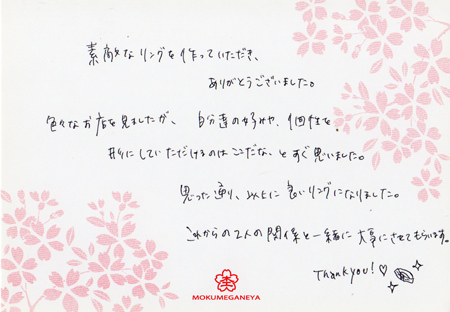 素敵なリングを作っていただき、
ありがとうございました。
色々なお店を見ましたが、自分達の好みや、個性を
形にしていただけるのはここだな、とすぐ思いました。
思った通り、以上に良いリングになりました。
これからの2人の関係と一緒に大事にさせてもらいます。
Thank you!♡
MOKUMEGANEYA